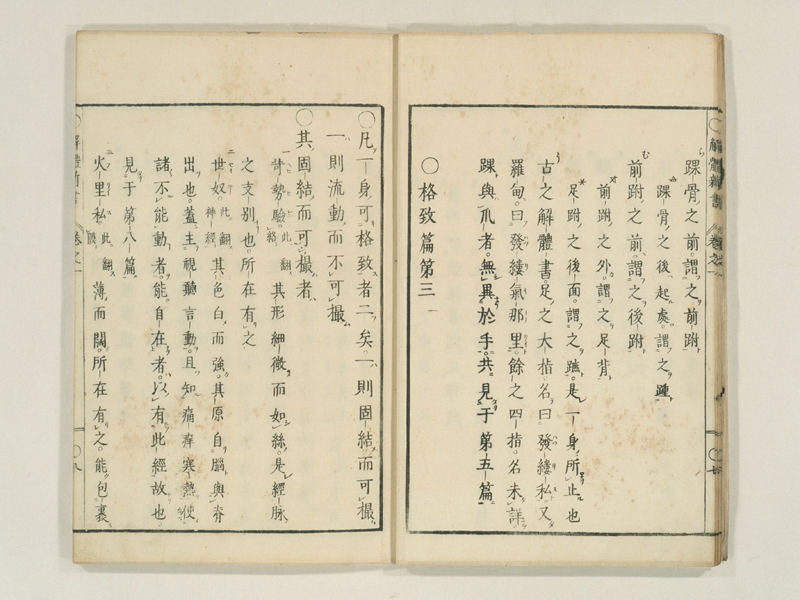 踝骨之前謂之前跗
踝骨之後起處謂之踵
前跗之前謂之後跗
前跗之外謂之足背
足跗之後面謂之蹠是一身所止也
古之解體書足之大指名曰發縷私又
羅甸曰發縷氣那里餘之四指名未詳
踝與爪者無異於手共見于第五篇
○格致篇第三
○凡一身可格致者二矣一則固結而可撮
一則流動而不可撮
○其固結而可撮者
一苛勢驗此翻經其形細微而如絲是經脉
之支別也所在有之
二世奴此翻神經其色白而強其原自腦與脊
出也蓋主視聽言動且知痛痒寒熱使
諸不能動者能自在者以有此經故也
見于第八篇
二火里私此翻膜薄而闊所在有之能包裹